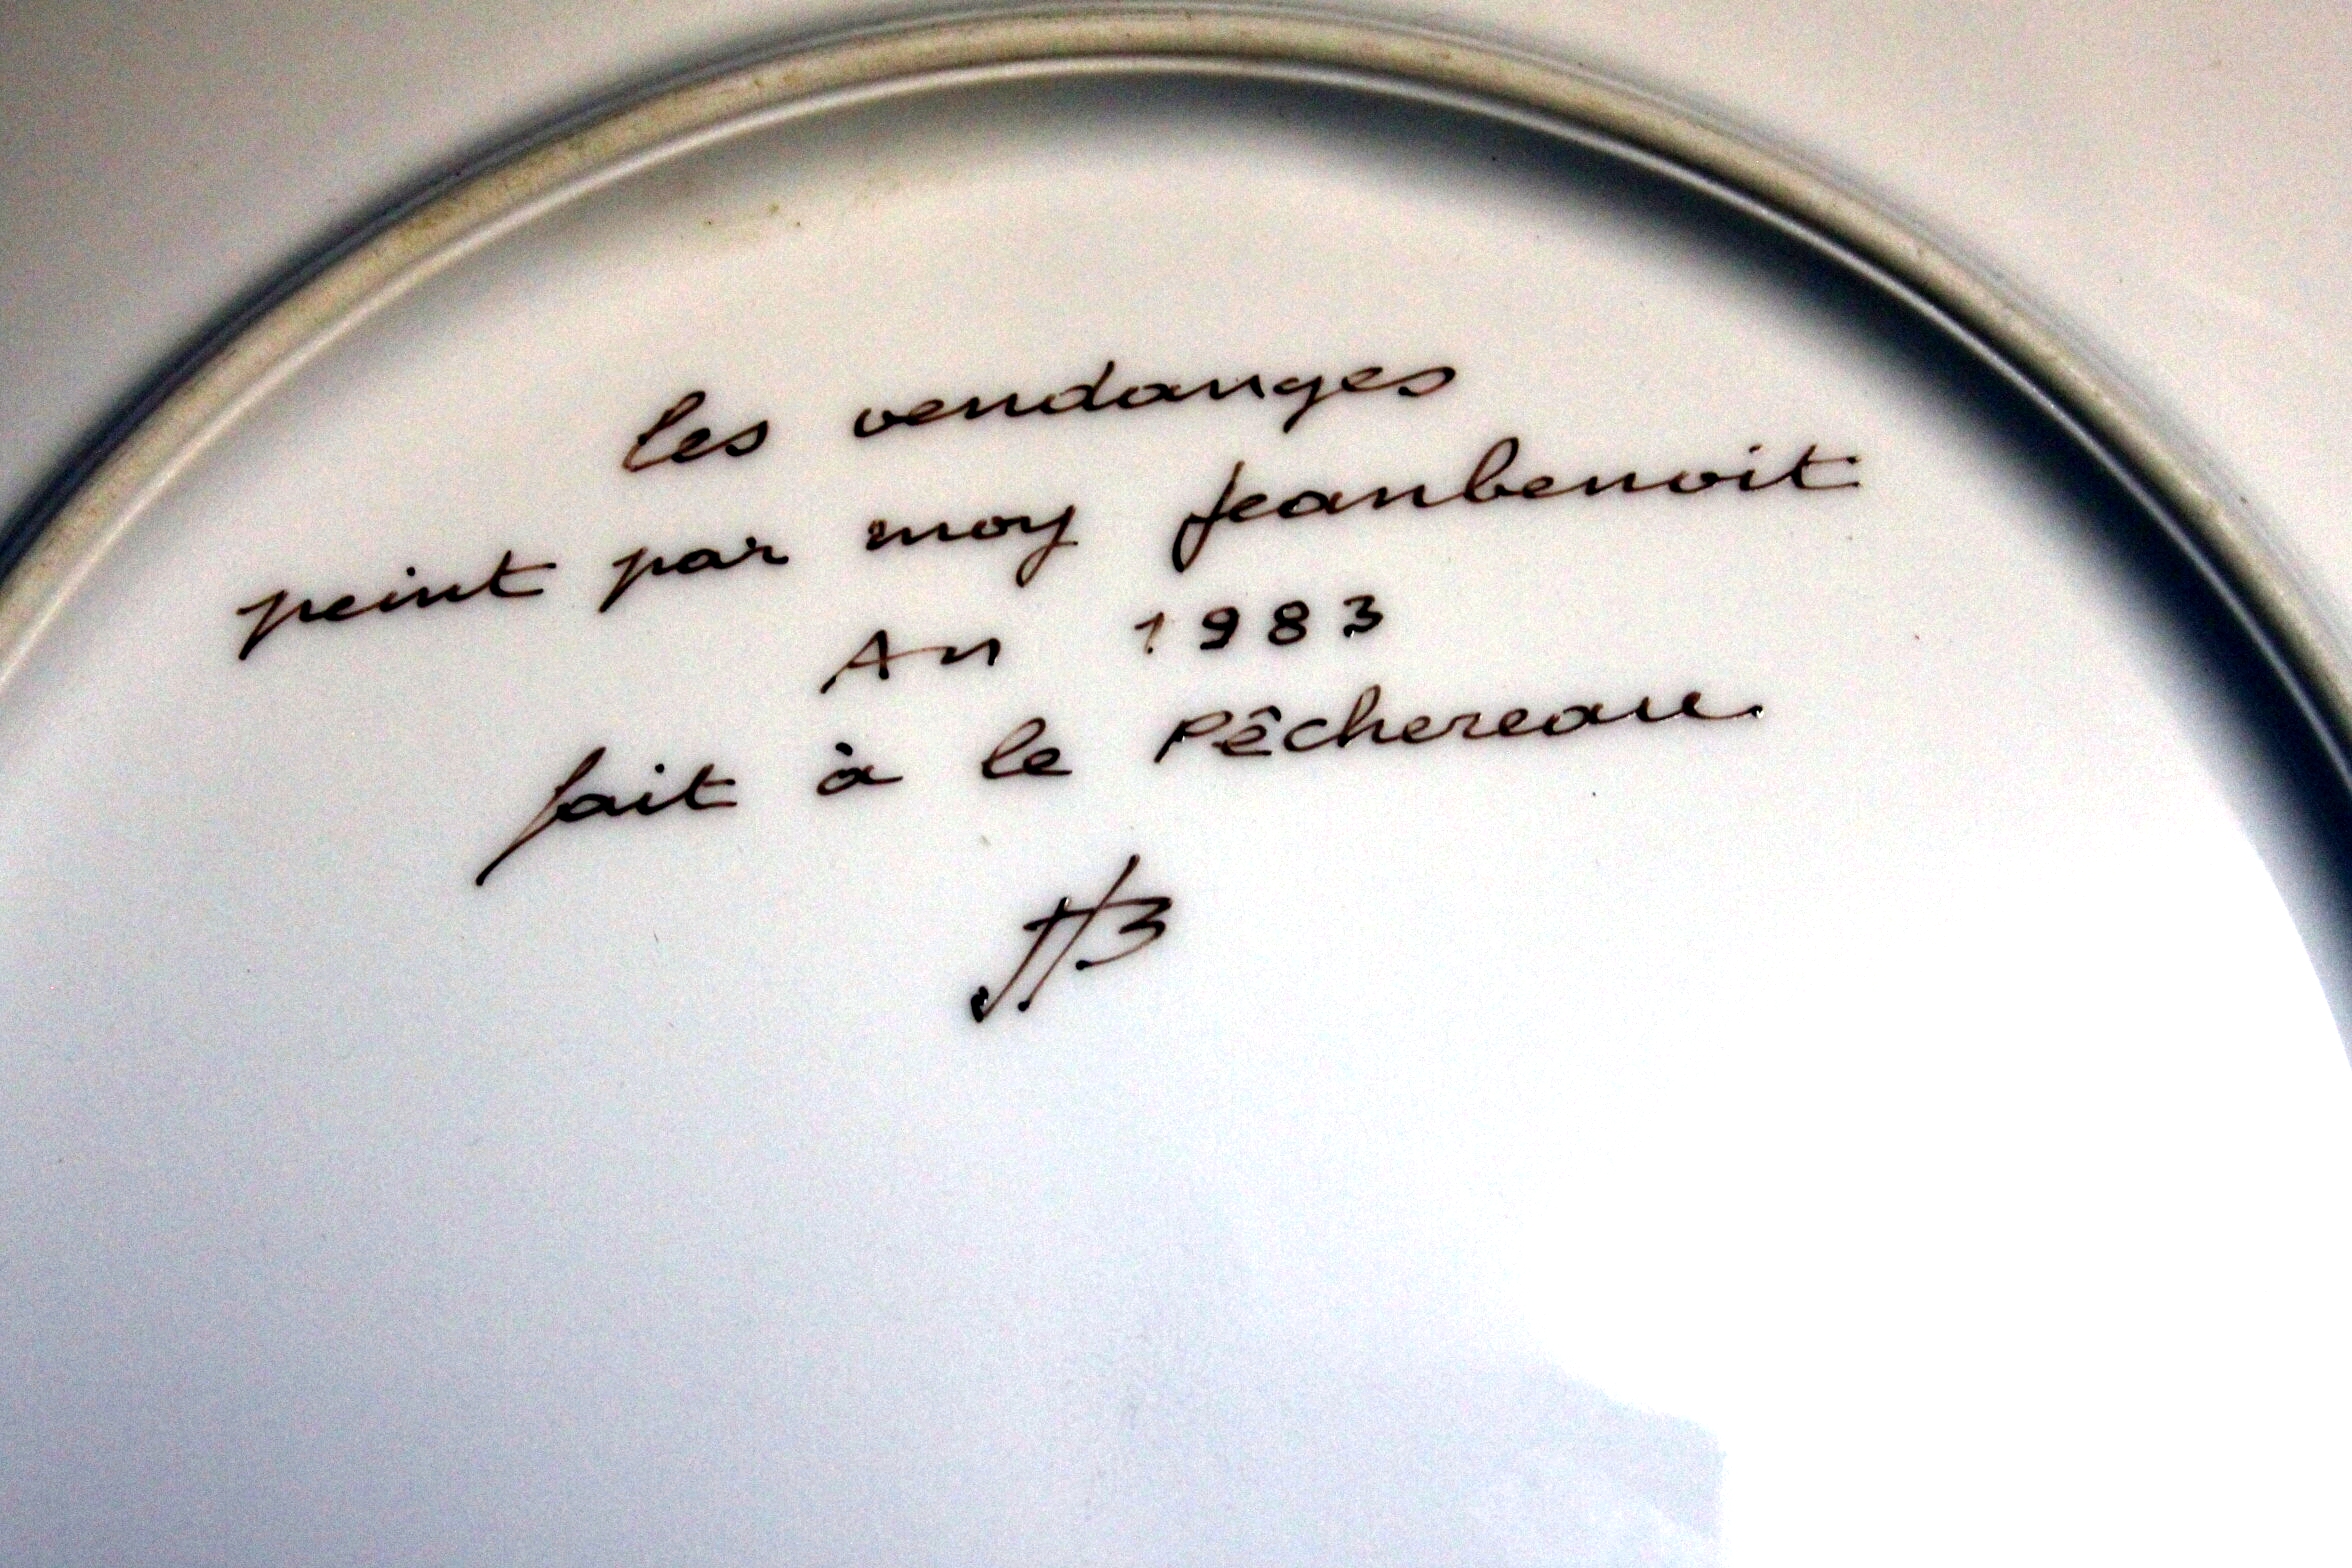 les vendanges
peint par moy Jeanbenoit
An 1983
fait à le Pêchereau.
JB